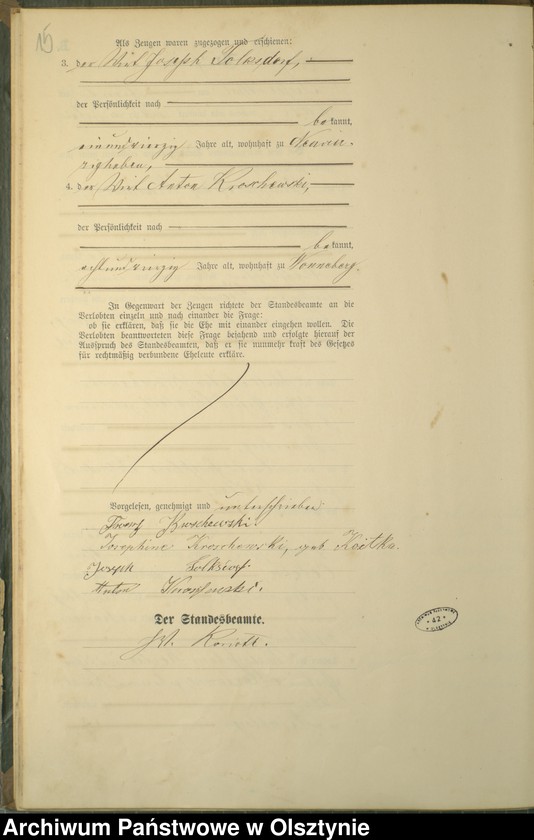 Als Zeugen waren zugezogen und erschienen:
3. der Wirt Joseph
der Persönlichkeit nach
bekannt,
einundvierzig Jahre alt, wohnhaft zu
4. der Wirt Anton Kroschewski,
der Persönlichkeit nach
bekannt,
achtundvierzig Jahre alt, wohnhaft zu Nonneberg.
In Gegenwart der Zeugen richtete der Standesbeamte an die
Verlobten einzeln und nach einander die Frage:
ob sie erklären, daß sie die Ehe mit einander eingehen wollen. Die
Verlobten beantworteten diese Frage bejahend und erfolgte hierauf der
Ausspruch des Standesbeamten, daß er sie nunmehr kraft des Gesetzes
für rechtmäßig verbundene Eheleute erkläre.
Vorgelesen, genehmigt und unterschrieben
Franz Kroschewski.
Josephine Kroschewski, geb. Koitka.
Joseph
Anton
Der Standesbeamte.
42
Archiwum Państwowe w Olsztynie